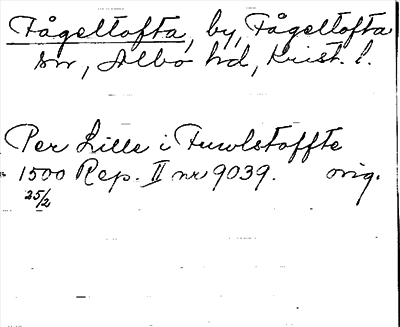 Fågeltofta, by, Fågeltofta
sn, Albo hd, Krist. l.
Per Lille i Fuwlstoffte
1500 Rep. II nr 9039. orig.
25/2